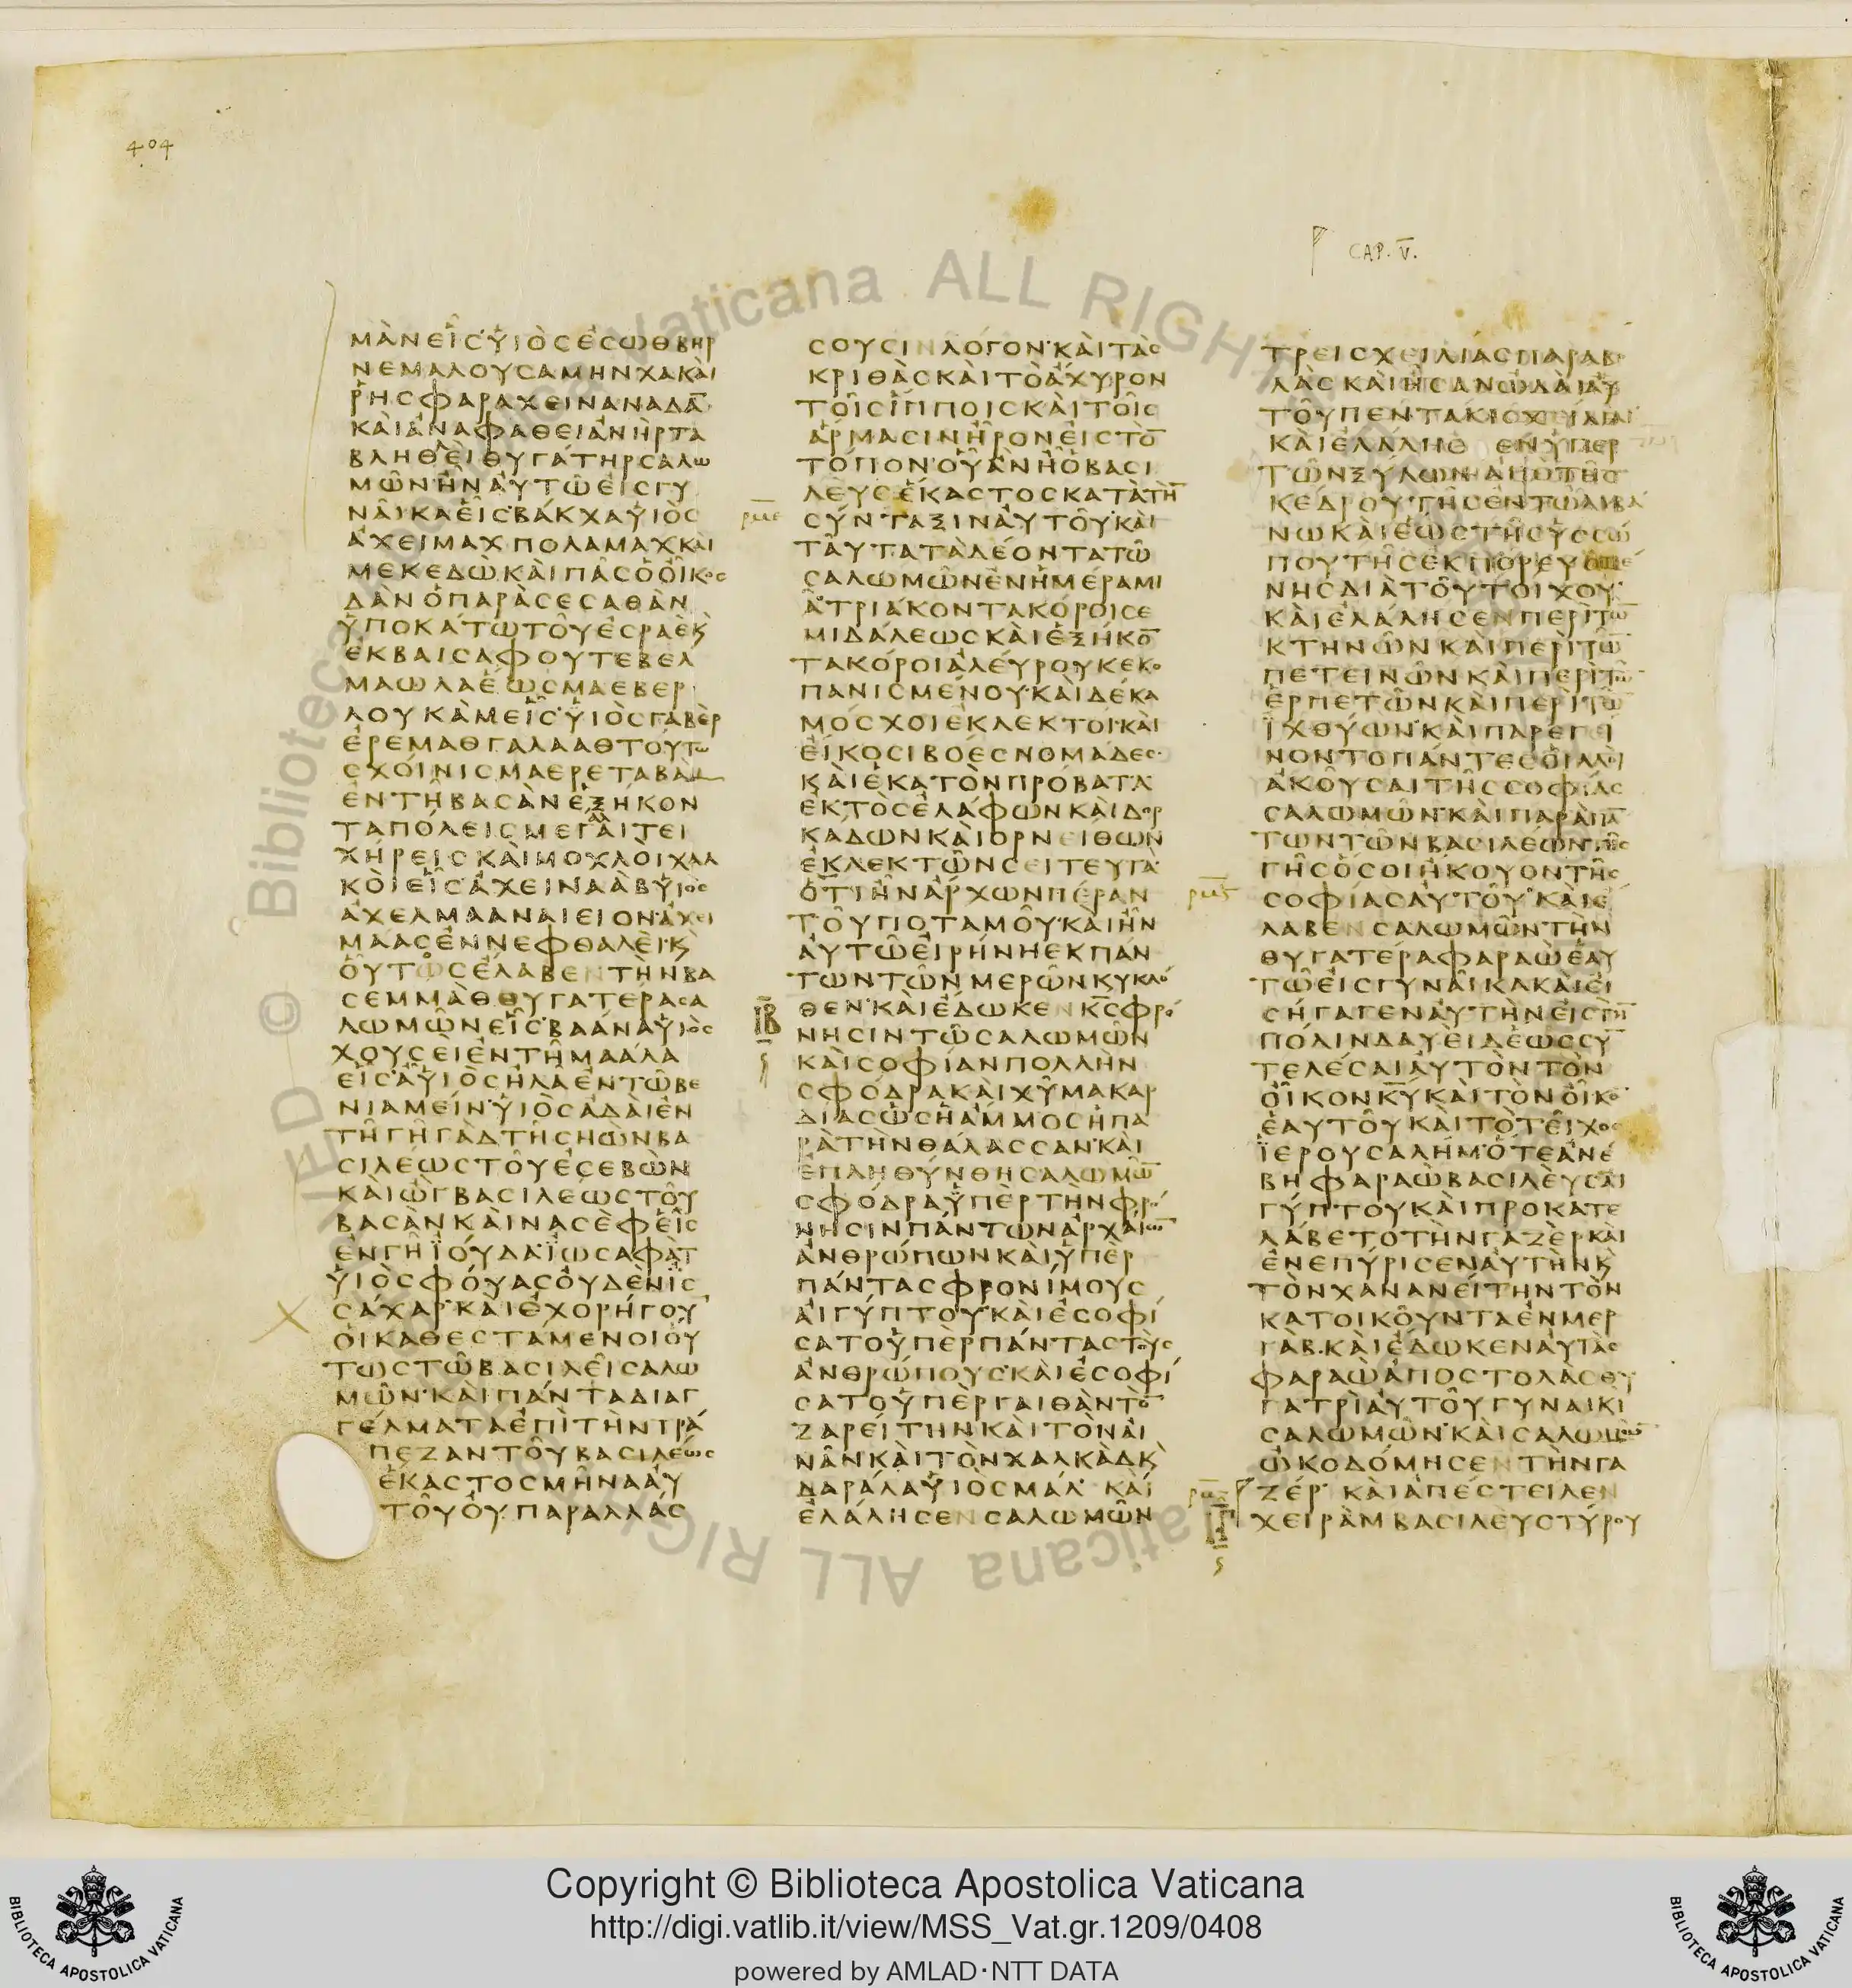 404
CAP. V.
ΜΑΝΕΙCΥΙΟCΕCΩΘΒΗΡ
ΝΕΜΑΛΟΥCΑΜΗΝΧΑΚΑΙ
ΡΗCΦΑΡΑΧΕΙΝΑΝΑΔΑ̅
ΚΑΙΑΝΑΦΑΘΕΙΑΝΗΡΤΑ
ΒΛΗΘΕΙΘΥΓΑΤΗΡCΑΛΩ
ΜΩΝΗΝΑΥΤΩΕΙCΓΥ
ΝΑΙΚΑΕΙCΒΑΚΧΑΥΙΟC
ΑΧΕΙΜΑΧΠΟΛΑΜΑΧΚΑΙ
ΜΕΚΕΔΩΚΑΙΠΑCΟΟΙΚΟC
ΔΑΝΟΠΑΡΑCΕCΑΘΑΝ
ΥΠΟΚΑΤΩΤΟΥΕCΡΑΕΚ
ΕΚΒΑΙCΑΦΟΥΤΕΒΕΛ
ΜΑΩΛΑΕΩCΜΑΕΒΕΡ
ΛΟΥΚΑΜΕΙCΥΙΟCΓΑΒΕΡ
ΕΡΕΜΑΘΓΑΛΑΑΘΤΟΥΤΩ
CΧΟΙΝΙCΜΑΕΡΕΤΑΒΑΜ
ΕΝΤΗΒΑCΑΝΕΞΗΚΟΝ
ΤΑΠΟΛΕΙCΜΕΓΑΛΑΙΤΕΙ
ΧΗΡΕΙCΚΑΙΜΟΧΛΟΙΧΑΛ
ΚΟΙΕΙCΑΧΕΙΝΑΑΒΥΙΟC
ΑΧΕΛΜΑΑΝΑΙΕΙΟΝΑΧΕΙ
ΜΑΑCΕΝΝΕΦΘΑΛΕΙΚ
ΟΥΤΟCΕΛΑΒΕΝΤΗΝΒΑ
CΕΜΜΑΘΘΥΓΑΤΕΡΑCΑ
ΛΩΜΩΝΕΙCΒΑΑΝΑΥΙΟC
ΧΟΥCΕΙΕΝΤΗΜΑΑΛΑ
ΕΙCΑΥΙΟCΗΛΑΕΝΤΩΒΕ
ΝΙΑΜΕΙΝΥΙΟCΑΔΑΙΕΝ
ΤΗΓΗΓΑΔΤΗCΗΩΝΒΑ
CΙΛΕΩCΤΟΥΕCΕΒΩΝ
ΚΑΙΩΓΒΑCΙΛΕΩCΤΟΥ
ΒΑCΑΝΚΑΙΝΑCΕΦΕΙC
ΕΝΓΗΙΟΥΔΑΙΩCΑΦΑΤ
ΥΙΟCΦΟΥΑCΟΥΔΕΝΙC
CΑΧΑΡΚΑΙΕΧΟΡΗΓΟΥ
ΟΙΚΑΘΕCΤΑΜΕΝΟΙΟΥ
ΤΩCΤΩΒΑCΙΛΕΙCΑΛΩ
ΜΩΝΚΑΙΠΑΝΤΑΔΙΑΓ
ΓΕΛΜΑΤΑΕΠΙΤΗΝΤΡΑ
ΠΕΖΑΝΤΟΥΒΑCΙΛΕΩC
ΕΚΑCΤΟCΜΗΝΑΑΥ
ΤΟΥΟΥΠΑΡΑΛΛΑC
CΟΥCΙΝΛΟΓΟΝΚΑΙΤΑC
ΚΡΙΘΑCΚΑΙΤΟΑΧΥΡΟΝ
ΤΟΙCΙΠΠΟΙCΚΑΙΤΟΙC
ΑΡΜΑCΙΝΗΡΟΝΕΙCΤΟ̅
ΤΟΠΟΝΟΥΑΝΗΟΒΑCΙ
ΛΕΥCΕΚΑCΤΟCΚΑΤΑΤΗ̅
CΥΝΤΑΞΙΝΑΥΤΟΥΚΑΙ
ΤΑΥΤΑΤΑΔΕΟΝΤΑΤΩ
CΑΛΩΜΩΝΕΝΗΜΕΡΑΜΙ
ΑΤΡΙΑΚΟΝΤΑΚΟΡΟΙCΕ
ΜΙΔΑΛΕΩCΚΑΙΕΞΗΚΟ̅
ΤΑΚΟΡΟΙΑΛΕΥΡΟΥΚΕΚΟ
ΠΑΝΙCΜΕΝΟΥΚΑΙΔΕΚΑ
ΜΟCΧΟΙΕΚΛΕΚΤΟΙΚΑΙ
ΕΙΚΟCΙΒΟΕCΝΟΜΑΔΕC
ΚΑΙΕΚΑΤΟΝΠΡΟΒΑΤΑ
ΕΚΤΟCΕΛΑΦΩΝΚΑΙΔΟΡ
ΚΑΔΩΝΚΑΙΟΡΝΕΙΘΩΝ
ΕΚΛΕΚΤΩΝCΕΙΤΕΥΤΑ
ΟΤΙΗΝΑΡΧΩΝΠΕΡΑΝ
ΤΟΥΠΟΤΑΜΟΥΚΑΙΗΝ
ΑΥΤΩΕΙΡΗΝΗΕΚΠΑΝ
ΤΩΝΤΩΝΜΕΡΩΝΚΥΚΛΟ
ΘΕΝΚΑΙΕΔΩΚΕΝΚ̅C̅ΦΡΟ
ΝΗCΙΝΤΩCΑΛΩΜΩΝ
ΚΑΙCΟΦΙΑΝΠΟΛΛΗΝ
CΦΟΔΡΑΚΑΙΧΥΜΑΚΑΡ
ΔΙΑCΩCΗΑΜΜΟCΗΠΑ
ΡΑΤΗΝΘΑΛΑCCΑΝΚΑΙ
ΕΠΛΗΘΥΝΘΗCΑΛΩΜΩ̅
CΦΟΔΡΑΥΠΕΡΤΗΝΦΡΟ
ΝΗCΙΝΠΑΝΤΩΝΑΡΧΑΙΩ̅
ΑΝΘΡΩΠΩΝΚΑΙΥΠΕΡ
ΠΑΝΤΑCΦΡΟΝΙΜΟΥC
ΑΙΓΥΠΤΟΥΚΑΙΕCΟΦΙ
CΑΤΟΥΠΕΡΠΑΝΤΑCΤΟΥC
ΑΝΘΡΩΠΟΥCΚΑΙΕCΟΦΙ
CΑΤΟΥΠΕΡΓΑΙΘΑΝΤΟ̅
ΖΑΡΕΙΤΗΝΚΑΙΤΟΝΑΙ
ΝΑΝΚΑΙΤΟΝΧΑΛΚΑΔΚ
ΔΑΡΑΛΑΥΙΟCΜΑΛ ΚΑΙ
ΕΛΑΛΗCΕΝCΑΛΩΜΩΝ
ΤΡΕΙCΧΕΙΛΙΑCΠΑΡΑΒΟ
ΛΑCΚΑΙΗCΑΝΩΔΑΙΑΥ
ΤΟΥΠΕΝΤΑΚΙCΧΕΙΛΙΑΙ
ΚΑΙΕΛΑΛΗCΕΝΥΠΕΡ
ΤΩΝΞΥΛΩΝΑΠΟΤΗC
ΚΕΔΡΟΥΤΗCΕΝΤΩΛΙΒΑ
ΝΩΚΑΙΕΩCΤΗCΥCCΩ
ΠΟΥΤΗCΕΚΠΟΡΕΥΟΜΕ
ΝΗCΔΙΑΤΟΥΤΟΙΧΟΥ
ΚΑΙΕΛΑΛΗCΕΝΠΕΡΙΤΩ̅
ΚΤΗΝΩΝΚΑΙΠΕΡΙΤΩ̅
ΠΕΤΕΙΝΩΝΚΑΙΠΕΡΙΤΩ̅
ΕΡΠΕΤΩΝΚΑΙΠΕΡΙΤΩ̅
ΙΧΘΥΩΝΚΑΙΠΑΡΕΓΕΙ
ΝΟΝΤΟΠΑΝΤΕCΟΙΛΑΟΙ
ΑΚΟΥCΑΙΤΗCCΟΦΙΑC
CΑΛΩΜΩΝΚΑΙΠΑΡΑΠΑ̅
ΤΩΝΤΩΝΒΑCΙΛΕΩΝΤΗC
ΓΗCΟCΟΙΗΚΟΥΟΝΤΗC
CΟΦΙΑCΑΥΤΟΥΚΑΙΕ
ΛΑΒΕΝCΑΛΩΜΩΝΤΗΝ
ΘΥΓΑΤΕΡΑΦΑΡΑΩΕΑΥ
ΤΩΕΙCΓΥΝΑΙΚΑΚΑΙΕΙ
CΗΓΑΓΕΝΑΥΤΗΝΕΙCΤΗ̅
ΠΟΛΙΝΔΑΥΕΙΔΕΩCCΥ̅
ΤΕΛΕCΑΙΑΥΤΟΝΤΟΝ
ΟΙΚΟΝΚ̅Υ̅ΚΑΙΤΟΝΟΙΚΟ̅
ΕΑΥΤΟΥΚΑΙΤΟΤΕΙΧΟC
ΙΕΡΟΥCΑΛΗΜΟΤΕΑΝΕ
ΒΗΦΑΡΑΩΒΑCΙΛΕΥCΑΙ
ΓΥΠΤΟΥΚΑΙΠΡΟΚΑΤΕ
ΛΑΒΕΤΟΤΗΝΓΑΖΕΡΚΑΙ
ΕΝΕΠΥΡΙCΕΝΑΥΤΗΝΚ
ΤΟΝΧΑΝΑΝΕΙΤΗΝΤΟΝ
ΚΑΤΟΙΚΟΥΝΤΑΕΝΜΕΡ
ΓΑΒΚΑΙΕΔΩΚΕΝΑΥΤΑC
ΦΑΡΑΩΑΠΟCΤΟΛΑCΘΥ
ΓΑΤΡΙΑΥΤΟΥΓΥΝΑΙΚΙ
CΑΛΩΜΩΝΚΑΙCΑΛΩΜΩ̅
ΩΚΟΔΟΜΗCΕΝΤΗΝΓΑ
ΖΕΡ ΚΑΙΑΠΕCΤΕΙΛΕΝ
ΧΕΙΡΑΜΒΑCΙΛΕΥCΤΥΡΟΥ
Copyright © Biblioteca Apostolica Vaticana
http://digi.vatlib.it/view/MSS_Vat.gr.1209/0408
powered by AMLAD·NTT DATA
BIBLIOTECA APOSTOLICA VATICANA
BIBLIOTECA APOSTOLICA VATICANA